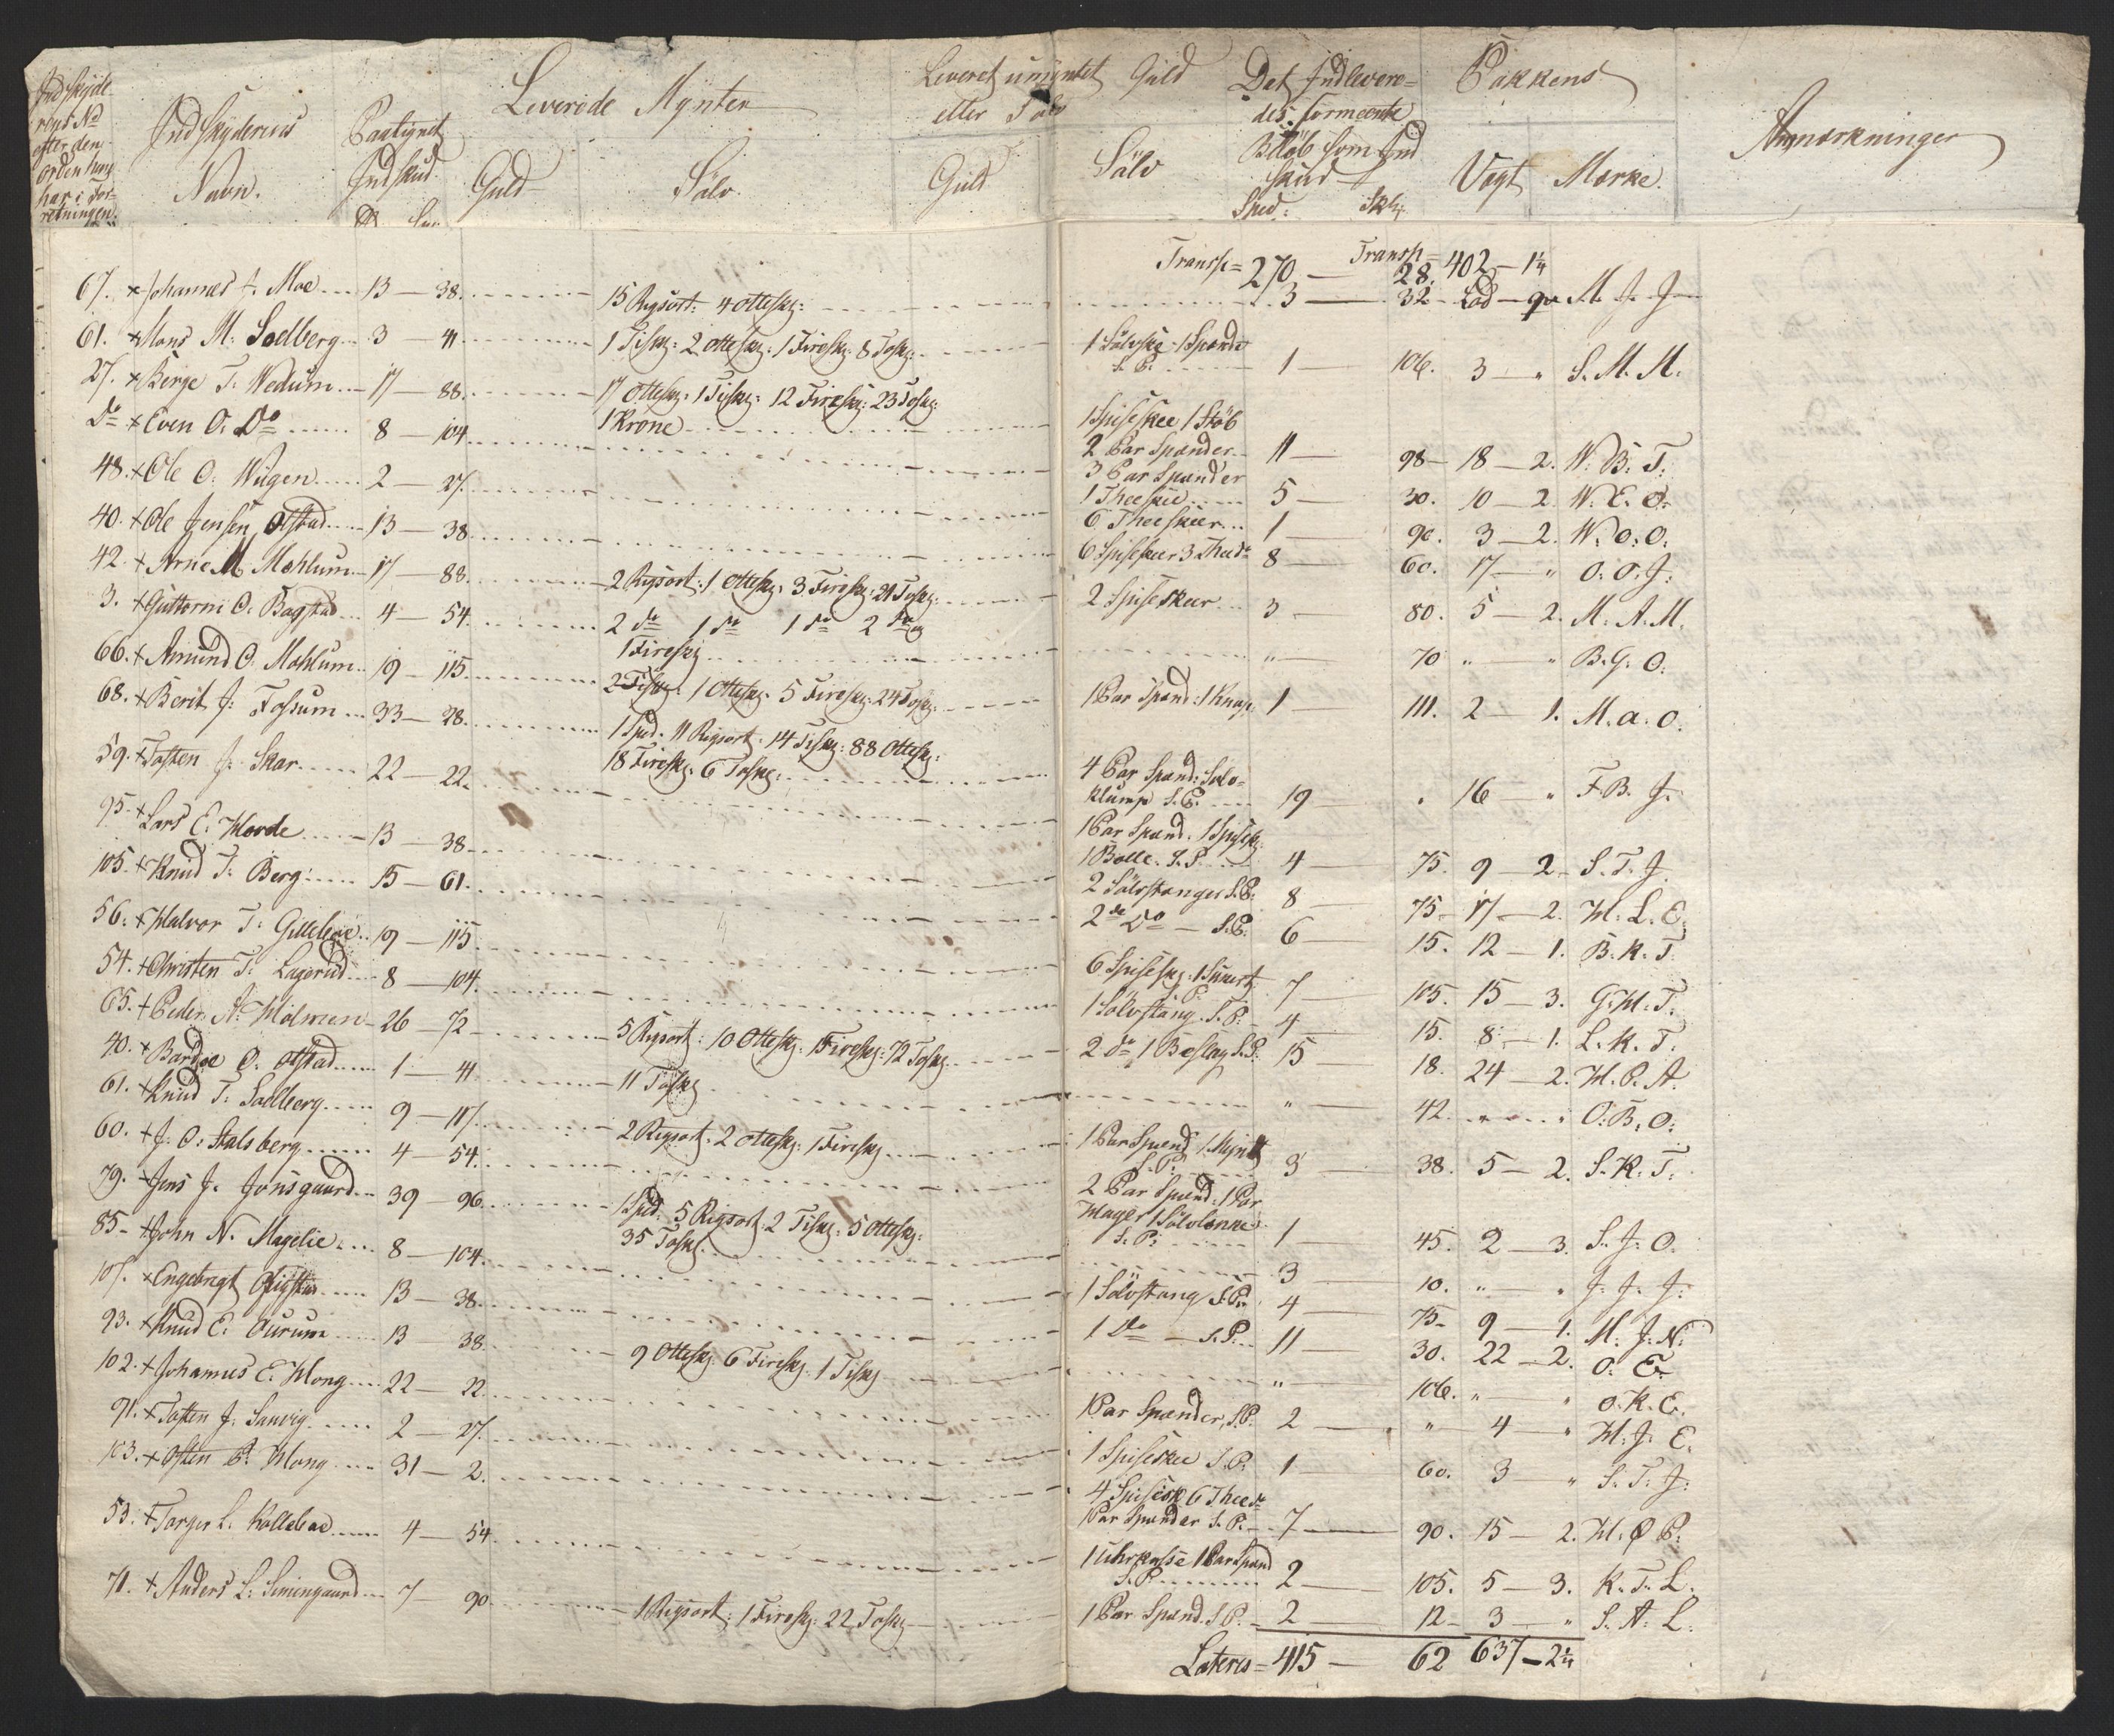 Indskyde-
rens No
efter den
Orden hung
har i For-
retningen.
Indskyderens
Navn.
Paalignet
Indskud.
Leverede Mynter
Guld
Sölv.
Leveret umyntet Guld
eller Sölv
Guld
Sölv
Det Indlevere-
des formeente
Belöb som Ind
skud
Sped: Skl:
Pakkens
Vægt Mærke.
Anmærkninger
Transp = 270 — Transp = 28. 402 — 1¼
67. × Johannes J. Moe 13 — 38. 15 Rigsort: 4 Ottesk: 3 — 32 Lod — qv M. J. J
61. × Mons M. Sodberg 3 — 41 1 Tisk: 2 Ottesk: 1 Firesk: 8 Tosk: 1 Sölvske 1 Spænde S. P. 1 — 106. 3 — " S. M. M.
27. × Berge T. Wedum 17 — 88. 17 Ottesk: 1 Tisk: 12 Firesk: 23 Tosk: 1 Krone 1 Spiseskee 1 Stöb 2 Par Spænder 11 — 98 — 18 — 2. W. B. T.
Do × Even O. Do 8 — 104 3 Par Spænder 1 Theeskee 5 — 30. 10 — 2. W. E. O.
48. × Ole O. Wügen 2 — 27. 6 Theeskeer 1 — 90. 3 — 2. W. O. O.
40. × Ole Jensen Otstad 13 — 38 6 Spiseskeer 3 Theedo 8 — 60. 17 — " O. O. J.
42. × Arne M. Mæhlum 17 — 88. 2 Rigsort: 1 Ottesk: 3 Firesk: 21 Tosk: 2 Spiseskeer 3 — 80. 5 — 2. M. A. M.
3. × Guttorm O. Bagstad 4 — 54. 2 do 1 do 1 do 2 do og 1 Firesk " — 70 " — " B. G. O.
66. × Amund O. Mæhlum 19 — 115. 2 Tisk: 1 Ottesk. 5 Firesk: 24 Tosk: 1 Par Spænd: 1 Knap 1 — 111. 2 — 1. M. a. O.
68. × Berit J. Fossum 33 — 28. 1 Spd. 11 Rigsort. 14 Tisk: 88 Ottesk: 18 Firesk. 6 Tosk: 4 Par Spænd: Sölv= klump S. P. 19 — " 16 — " F. B. J.
59. × Tosten J. Skar 22 — 22. 1 Par Spænd. 1 Spisesk: 1 Bolle. S. P. 4 — 75. 9 — 2 — S. T. J.
95. × Lars E. Horde 13 — 38. 2 Sölvstanger S. P. 8 — 75. 17 — 2. H. L. E.
105. × Knud T. Berg 15 — 61. 2 de Do — S. P. 6 — 15. 12 — 1. B. K. T.
56. × Halvor T. Gillebae 19 — 115. 6 Spisesk: 1 P. 7 — 105. 15 — 3. G. H. T.
54. × Christen T. Lagerud 8 — 104. 1 Sölvstang. S. P. 4 — 15. 8 — 1. L. K. T.
65. × Peder A. Holmen 26 — 72 5 Rigsort: 10 Ottesk. 1 Firesk: 72 Tosk. 2 do 1 Beslag S. P. 15 — 18. 24 — 2. H. P. A.
40. × Bardoe O. Otstad 1 — 41. 11 Tosk " — 42. " " O. B. O.
61. × Knud T. Sodberg 9 — 117. 2 Rigsort: 2 Ottesk: 1 Firesk: 1 Par Spænd 1 Mynt S. P. 3 — 38. 5 — 2. S. K. T.
60. × J. O. Stalsberg 4 — 54. 2 Par Spænd. 1 Par Mager 1 Sölvlænke S. P. 1 — 45. 2 — 3. S. J. O.
79. × Jens J. Jonsgaard 39 — 96. 1 Spd. 5 Rigsort. 2 Tisk: 5 Ottesk: 35 Tosk. 3 — 10. " — " J. J. J.
85 — × John N. Magelie 8 — 104. 1 Sölvstang S. P. 4 — 75 — 9 — 1. M. J. N.
107. × Engebregt 13 — 38. 1 do — S. P. 11 — 30. 22 — 2. O. E.
93. × Knud E. Ourum 13 38. 9 Ottesk. 6 Firesk. 1 Tisk " — 106. " — " O. K. E.
102. × Johannes E. Hong 22 — 22. 1 Par Spænder, S. P. 2 — " — 4 — " H. J. E.
91. × Tosten J. Sanvig 2 — 27. 1 Spiseskee S. P. 1 — 60. 3 — " S. T. J.
103. × Østen P. Hong 31 — 2. 4 Spisesk 6 Theedo 1 Par Spænder S. P. 7 — 90. 15 — 2. H. Ø P.
53. × Torger L. Kollebae 4 — 54 1 Uhrkasse 1 Par Spænd S. P. 2 — 105. 5 — 3. K. T. L.
71. × Anders L. Simengaard 7 — 90 1 Rigsort: 1 Firesk: 22 Tosk 1 Par Spænd. S. P. 2 — 12 — 3 — " S. A. L.
Lateris = 415 — 62 637 — 2¼